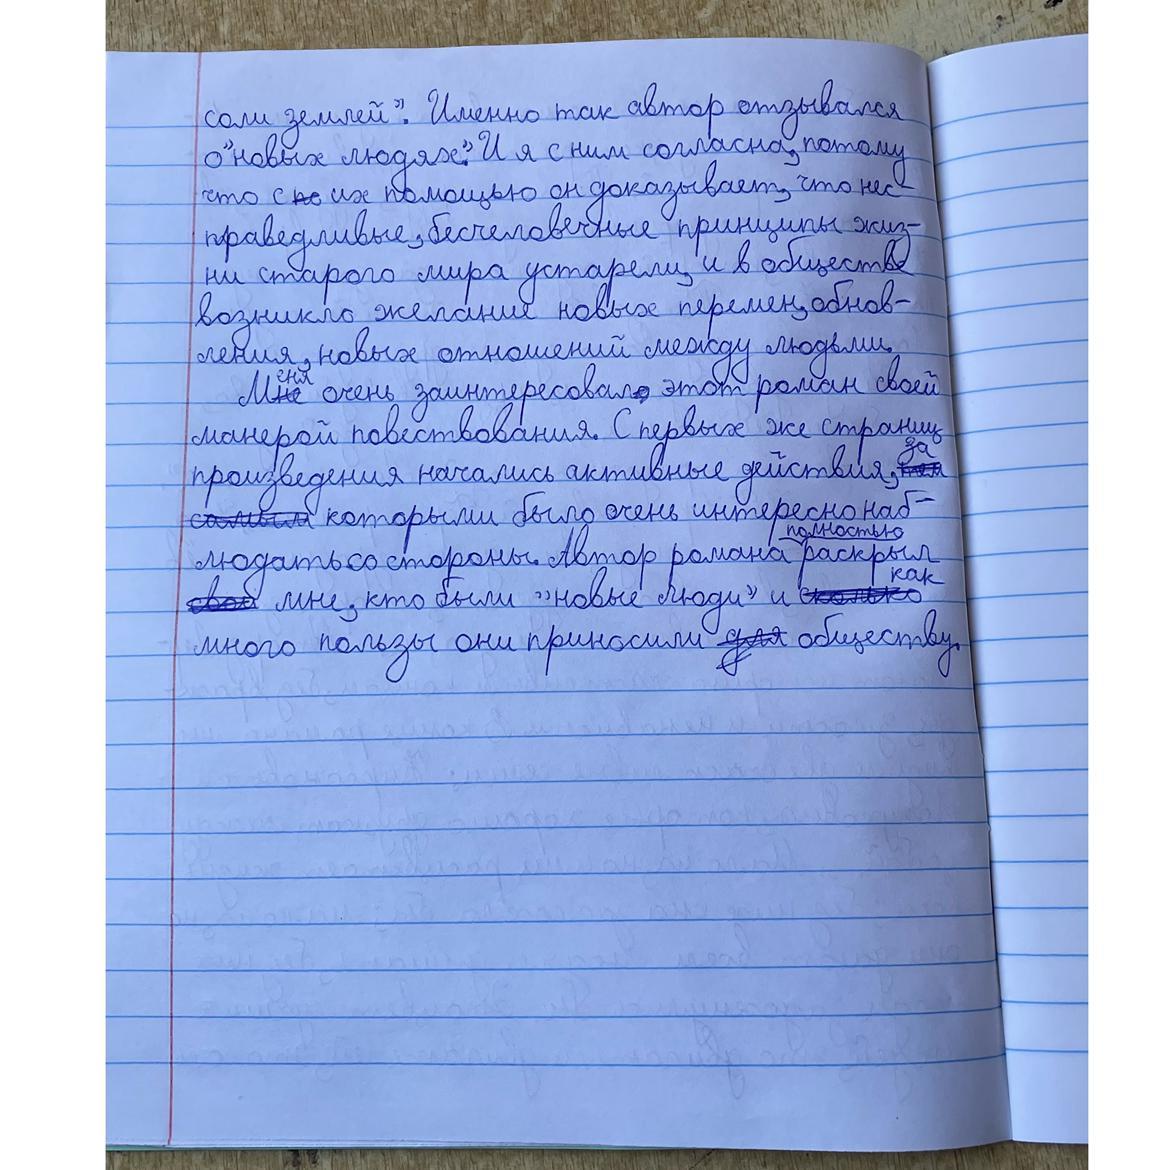 соли землей". Именно так автор отзывался
о "новых людях." И я с ним согласна, потому
что с их помощью он доказывает, что нес-
праведливые, бесчеловечные принципы жиз-
ни старого мира устарели, и в обществе
возникло желание новых перемен, обнов-
ления, новых отношений между людьми.
Меня очень заинтересовал этот роман своей
манерой повествования. С первых же страниц
произведения начались активные действия, за
которыми было очень интересно наб-
людать со стороны. Автор романа полностью раскрыл
мне, кто были "новые люди" и как
много пользы они приносили обществу.